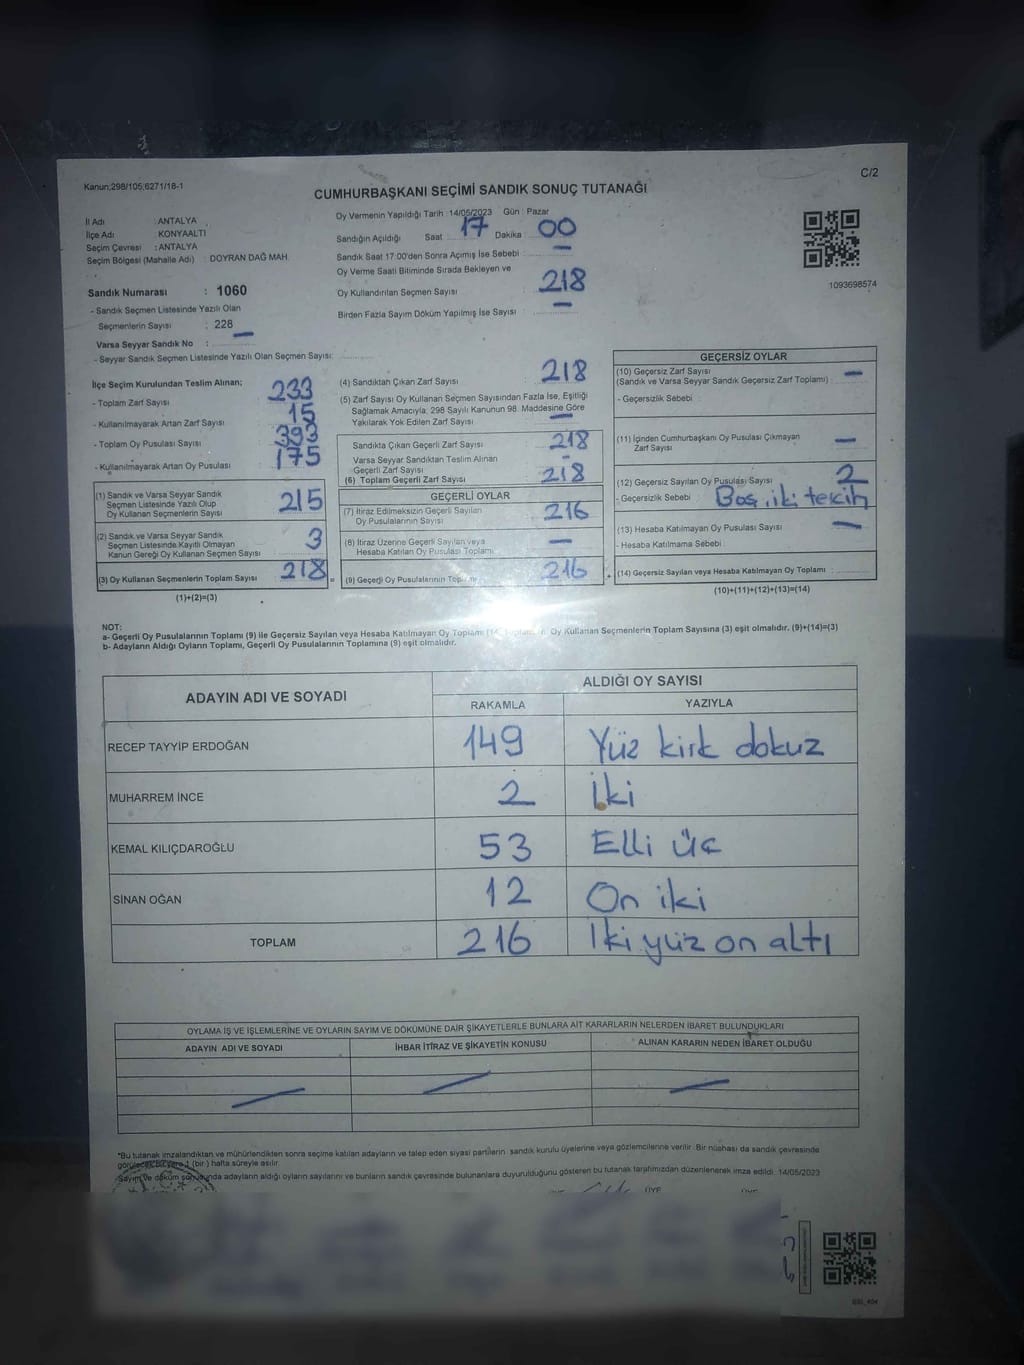 Kanun;298/105;6271/18-1
C/2
CUMHURBAŞKANI SEÇİMİ SANDIK SONUÇ TUTANAĞI
İl Adı : ANTALYA
İlçe Adı : KONYAALTI
Seçim Çevresi : ANTALYA
Seçim Bölgesi (Mahalle Adı) : DOYRAN DAĞ MAH.
Sandık Numarası : 1060
- Sandık Seçmen Listesinde Yazılı Olan
Seçmenlerin Sayısı : 228
Varsa Seyyar Sandık No : —
- Seyyar Sandık Seçmen Listesinde Yazılı Olan Seçmen Sayısı:
Oy Vermenin Yapıldığı Tarih : 14/05/2023 Gün : Pazar
Sandığın Açıldığı Saat 17 Dakika : 00
Sandık Saat 17:00'den Sonra Açımış İse Sebebi : —
Oy Verme Saati Bitiminde Sırada Bekleyen ve
Oy Kullandırılan Seçmen Sayısı : 218
Birden Fazla Sayım Döküm Yapılmış İse Sayısı : —
1093698574
İlçe Seçim Kurulundan Teslim Alınan;
- Toplam Zarf Sayısı : 233
- Kullanılmayarak Artan Zarf Sayısı : 15
- Toplam Oy Pusulası Sayısı : 393
- Kullanılmayarak Artan Oy Pusulası : 175
(1) Sandık ve Varsa Seyyar Sandık
Seçmen Listesinde Yazılı Olup
Oy Kullanan Seçmenlerin Sayısı 215
(2) Sandık ve Varsa Seyyar Sandık
Seçmen Listesinde Kayıtlı Olmayan
Kanun Gereği Oy Kullanan Seçmen Sayısı 3
(3) Oy Kullanan Seçmenlerin Toplam Sayısı 218 =
(1)+(2)=(3)
(4) Sandıktan Çıkan Zarf Sayısı : 218
(5) Zarf Sayısı Oy Kullanan Seçmen Sayısından Fazla İse, Eşitliği
Sağlamak Amacıyla; 298 Sayılı Kanunun 98. Maddesine Göre
Yakılarak Yok Edilen Zarf Sayısı : —
Sandıkta Çıkan Geçerli Zarf Sayısı : 218
Varsa Seyyar Sandıktan Teslim Alınan
Geçerli Zarf Sayısı : -
(6) Toplam Geçerli Zarf Sayısı : 218
GEÇERLİ OYLAR
(7) İtiraz Edilmeksizin Geçerli Sayılan
Oy Pusulalarının Sayısı : 216
(8) İtiraz Üzerine Geçerli Sayılan veya
Hesaba Katılan Oy Pusulası Toplamı : —
(9) Geçerli Oy Pusulalarının 216
GEÇERSİZ OYLAR
(10) Geçersiz Zarf Sayısı
(Sandık ve Varsa Seyyar Sandık Geçersiz Zarf Toplamı) : —
- Geçersizlik Sebebi :
(11) İçinden Cumhurbaşkanı Oy Pusulası Çıkmayan
Zarf Sayısı : —
(12) Geçersiz Sayılan Oy Pusulası Sayısı : 2
- Geçersizlik Sebebi : Boş, iki tercih
(13) Hesaba Katılmayan Oy Pusulası Sayısı : —
- Hesaba Katılmama Sebebi :
(14) Geçersiz Sayılan veya Hesaba Katılmayan Oy Toplamı :
(10)+(11)+(12)+(13)=(14)
NOT:
a- Geçerli Oy Pusulalarının Toplamı (9) ile Geçersiz Sayılan veya Hesaba Katılmayan Oy Toplamı Oy Kullanan Seçmenlerin Toplam Sayısına (3) eşit olmalıdır. (9)+(14)=(3)
b- Adayların Aldığı Oyların Toplamı, Geçerli Oy Pusulalarının Toplamına (9) eşit olmalıdır.
ADAYIN ADI VE SOYADI ALDIĞI OY SAYISI
RAKAMLA YAZIYLA
RECEP TAYYİP ERDOĞAN 149 Yüz kirk dokuz
MUHARREM İNCE 2 İki
KEMAL KILIÇDAROĞLU 53 Elli üç
SİNAN OĞAN 12 On iki
TOPLAM 216 İki yüz on altı
OYLAMA İŞ VE İŞLEMLERİNE VE OYLARIN SAYIM VE DÖKÜMÜNE DAİR ŞİKAYETLERLE BUNLARA AİT KARARLARIN NELERDEN İBARET BULUNDUKLARI
ADAYIN ADI VE SOYADI İHBAR İTİRAZ VE ŞİKAYETİN KONUSU ALINAN KARARIN NEDEN İBARET OLDUĞU
*Bu tutanak imzalandıktan ve mühürlendikten sonra seçime katılan adayların ve talep eden siyasi partilerin sandık kurulu üyelerine veya gözlemcilerine verilir. Bir nüshası da sandık çevresinde
görülecek bir yere 1 (bir) hafta süreyle asılır
Sayım ve döküm sonunda adayların aldığı oyların sayılarını ve bunların sandık çevresinde bulunanlara duyurulduğunu gösteren bu tutanak tarafımızdan düzenlenerek imza edildi. 14/05/2023
ÜYE